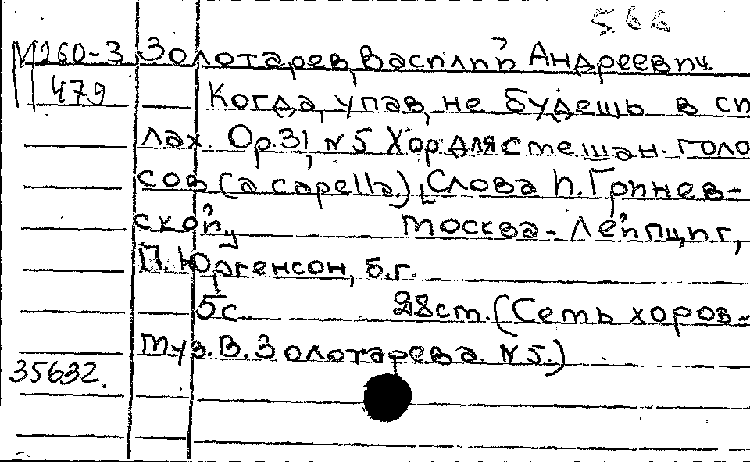 566
М260-3 Золотарев, Василий Андреевич.
479 Когда, упав, не будешь в си
лах. Ор.31, №5 Хор для смешан. голо
сов (a capella.) Слова И. Гринев-
ской Москва-Лейпциг,
П. Юргенсон, б.г.
5с 28ст. (Семь хоров-
муз. В. Золотарева. №5.)
35632.